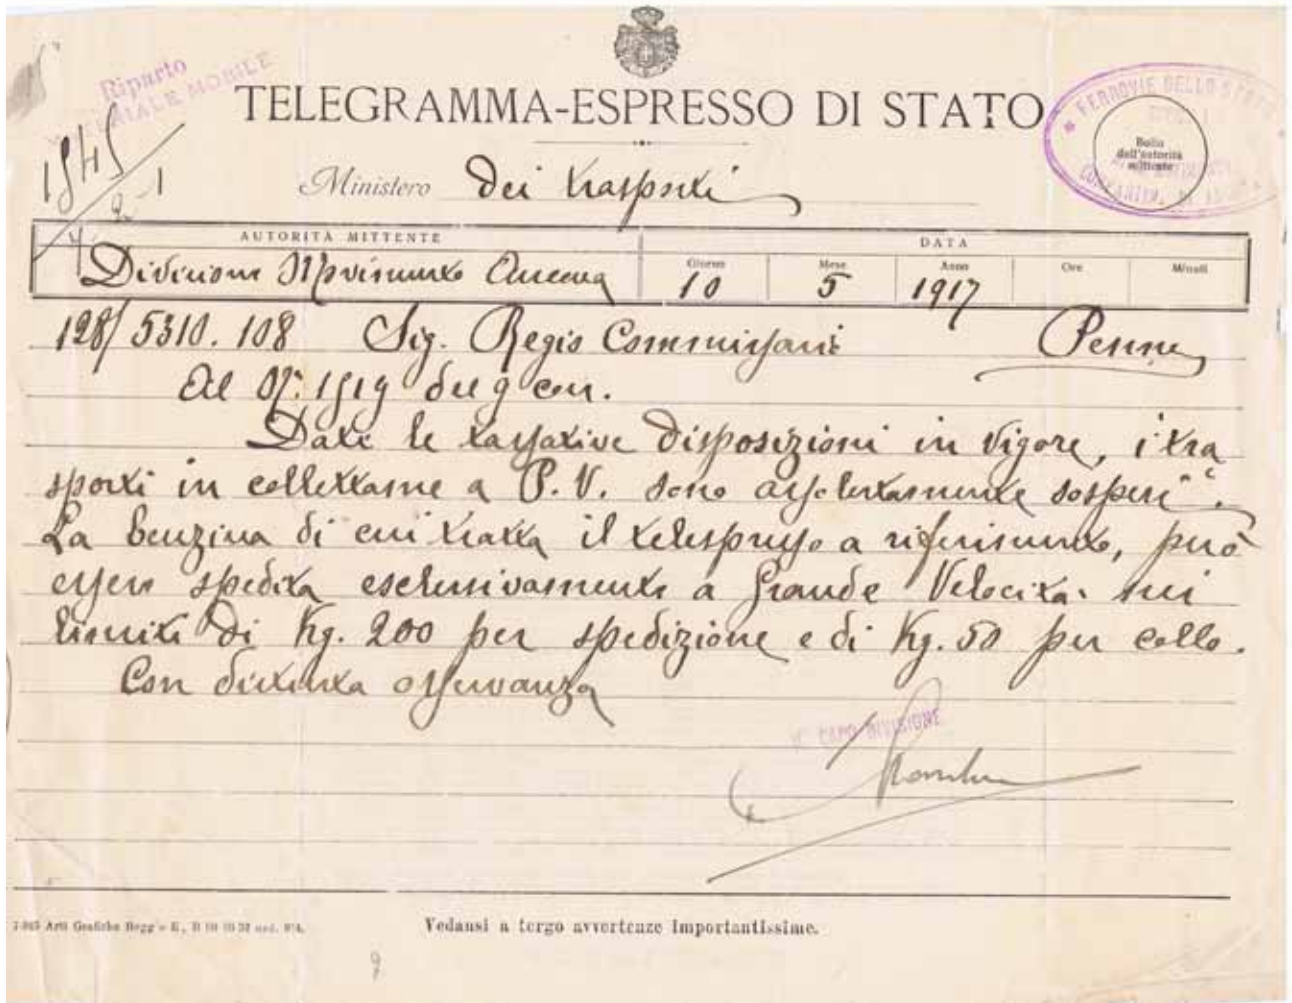 Riparto
MATERIALE MOBILE
TELEGRAMMA-ESPRESSO DI STATO
FERROVIE DELLO STATO
Bollo
dell'autorità
mittente
1545
Ministero dei trasporti
AUTORITÀ MITTENTE
DATA
Divisione Movimento Ancona
Giorno Mese Anno Ore Minuti
10 5 1917
128/5310.108 Sig. Regio Commissario Penne
Al N. 1519 del 9 corr.
Date le tassative disposizioni in vigore, i tra
sporti in collettame a P.V. sono assolutamente sospesi.
La benzina di cui tratta il telespresso a riferimento, può
essere spedita esclusivamente a Grande Velocità. nei
limiti di Kg. 200 per spedizione e di Kg. 50 per collo.
Con distinta osservanza
IL CAPO DIVISIONE
Arti Grafiche
Vedansi a tergo avvertenze importantissime.